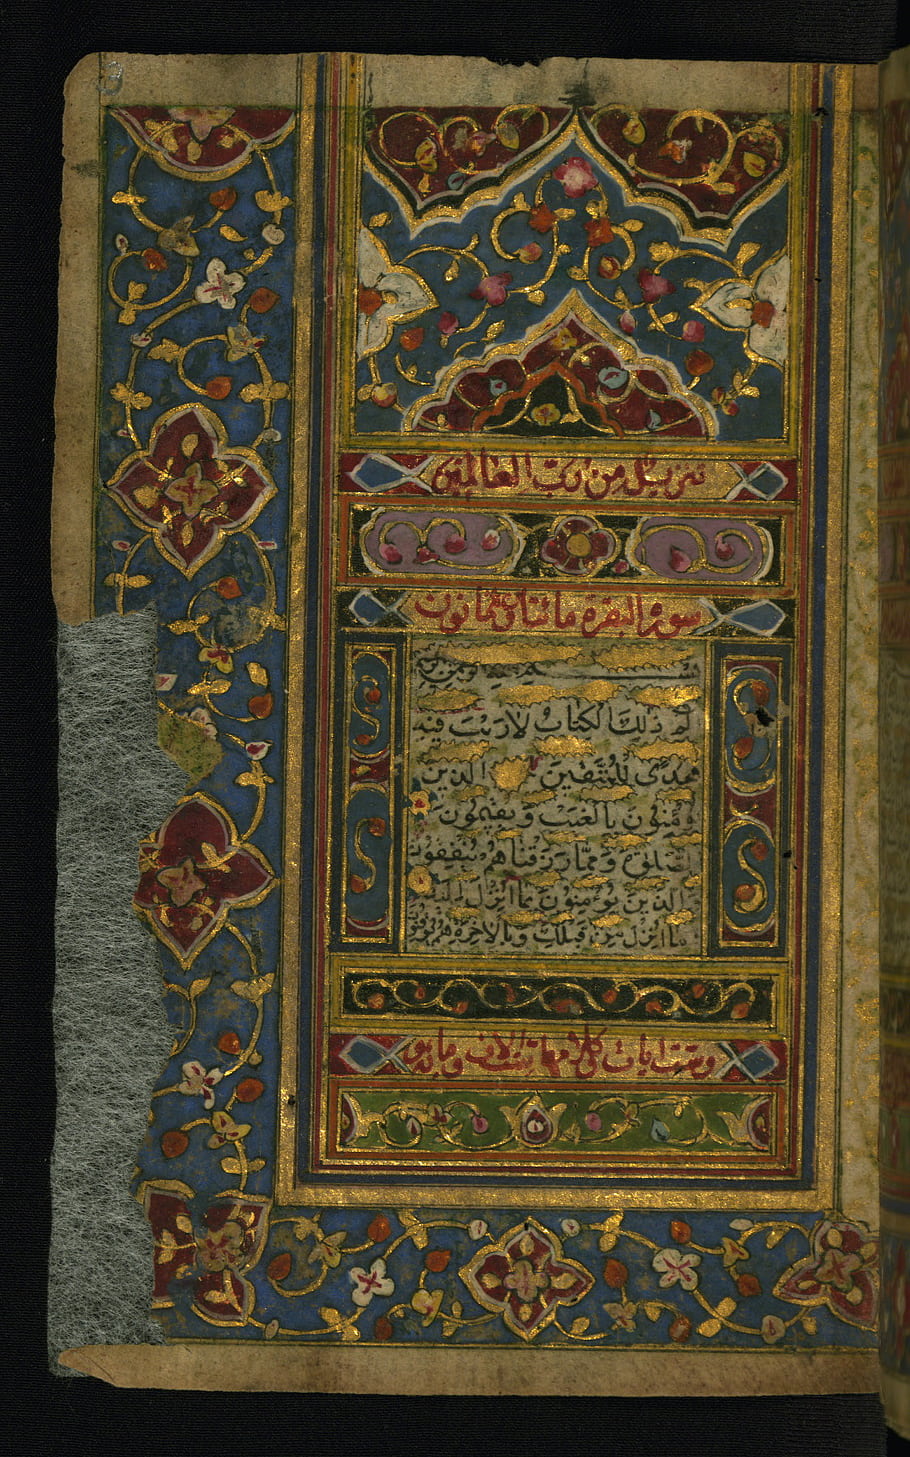 تنزيل من رب العالمين
سورة البقرة مائتان ثمانون
الم ذلك الكتاب لا ريب فيه
هدى للمتقين الذين
يؤمنون بالغيب ويقيمون
الصلوة ومما رزقناهم ينفقون
الذين يؤمنون بما انزل اليك
ما انزل من قبلك وبالاخرة هم يوقنون
وست ايات